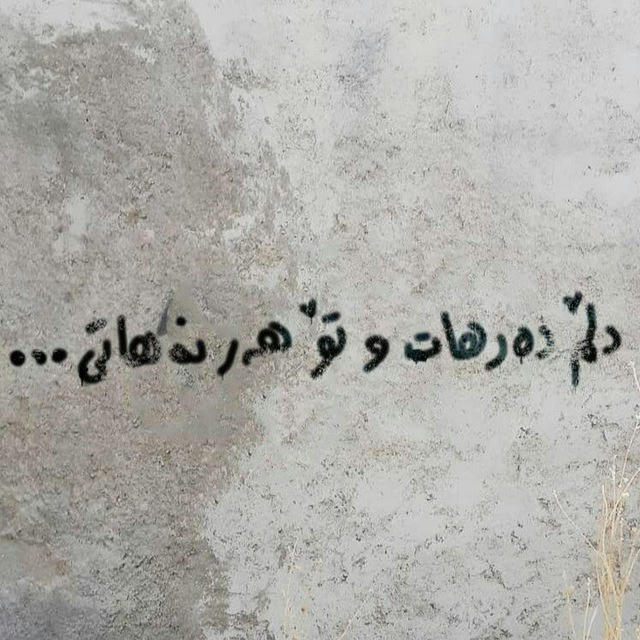 دڵم دەرهات و تۆ هەر نەهاتی...